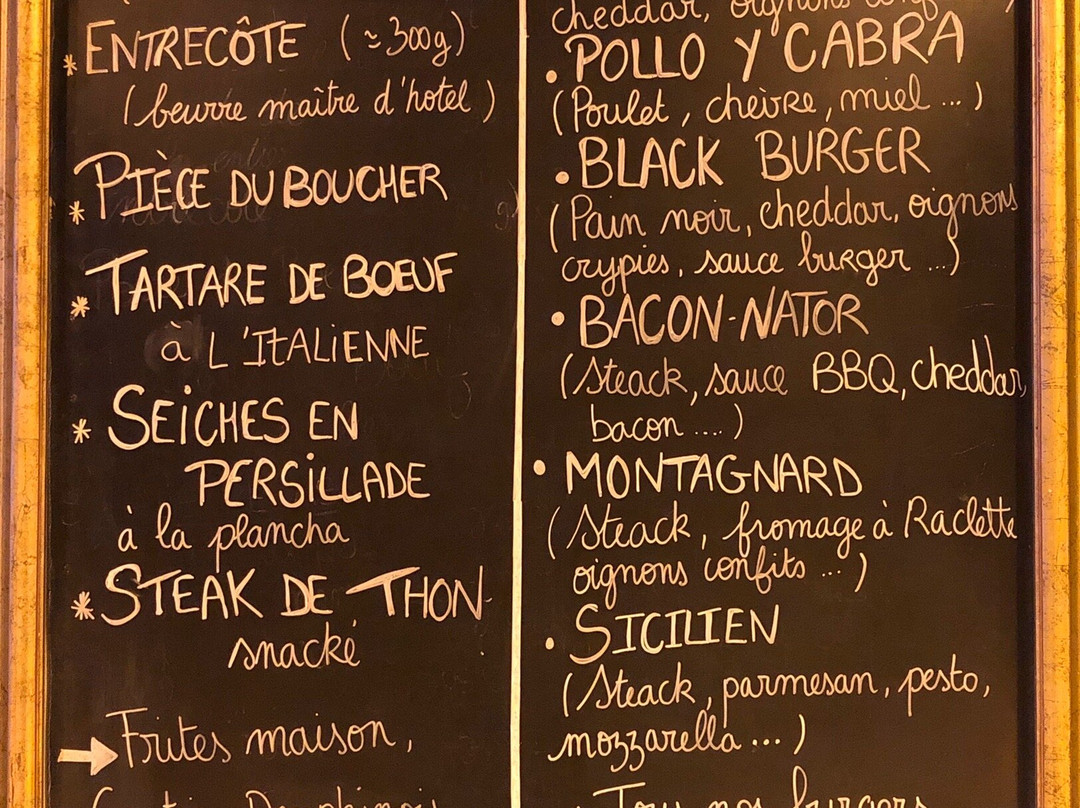 * ENTRECÔTE (≃300g)
(beurre maître d'hotel)
* PIÈCE DU BOUCHER
* TARTARE DE BOEUF
à L'ITALIENNE
* SEICHES EN
PERSILLADE
à la plancha
* STEAK DE THON
snacké
→ Frites maison,
cheddar, oignons
• POLLO Y CABRA
(Poulet, chèvre, miel ...)
• BLACK BURGER
(Pain noir, cheddar, oignons
crypies, sauce burger ...)
• BACON-NATOR
(Steack, sauce BBQ, cheddar,
bacon ....)
• MONTAGNARD
(Steack, fromage à Raclette
oignons confits ...)
• SICILIEN
(Steack, parmesan, pesto,
mozzarella ... )
• Tous nos burgers